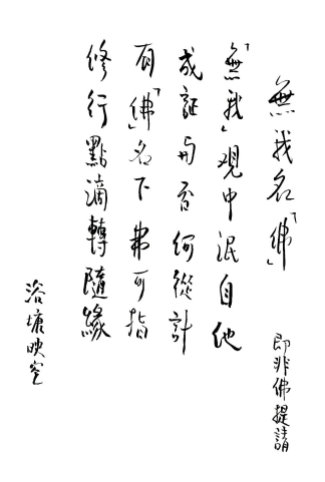 無我名「佛」
即非佛提請
「無我」观中泯自他
成証与否何從計
有「佛」名下弗可指
修行點滴轉隨緣
浴塘映空